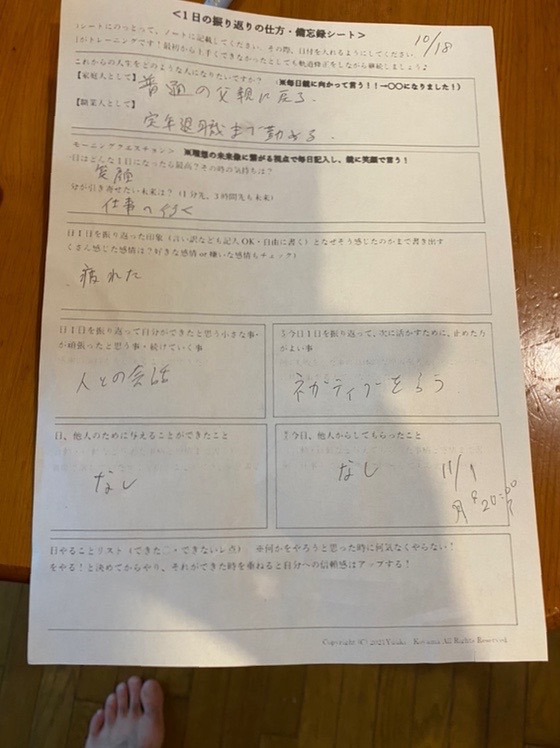 <1日の振り返りの仕方・備忘録シート>
10/18
シートにのっとって、ノートに記載してください。その際、日付を入れるようにしてください。
がトレーニングです！最初から上手くできなかったとしても軌道修正をしながら継続しましょう♪
これからの人生をどのような人になりたいですか？ (※毎日鏡に向かって言う！！→○○になりました！)
【家庭人として】
普通の父親に戻る。
【職業人として】
定年退職まで勤める。
モーニングクエスチョン> ※理想の未来像に繋がる視点で毎日記入し、鏡に笑顔で言う！
日はどんな1日になったら最高？その時の気持ちは？
笑顔
分が引き寄せたい未来は？(1分先、3時間先も未来)
仕事へ行く
日1日を振り返った印象 (言い訳なども記入OK・自由に書く) となぜそう感じたのかまで書き出す
くさん感じた感情は？好きな感情or嫌いな感情もチェック)
疲れた
日1日を振り返って自分ができたと思う小さな事・
か頑張ったと思う事・続けていく事
人との会話
今日1日を振り返って、次に活かすために、止めた方
がよい事
ネガティブをらう
日、他人のために与えることができたこと
なし
今日、他人からしてもらったこと
なし
11/1
月 20:00
日やることリスト (できた○・できないレ点) ※何かをやろうと思った時に何気なくやらない！
をやる！と決めてからやり、それができた時を重ねると自分への信頼感はアップする！
Copyright (C) 2021 Koyama All Rights Reserved